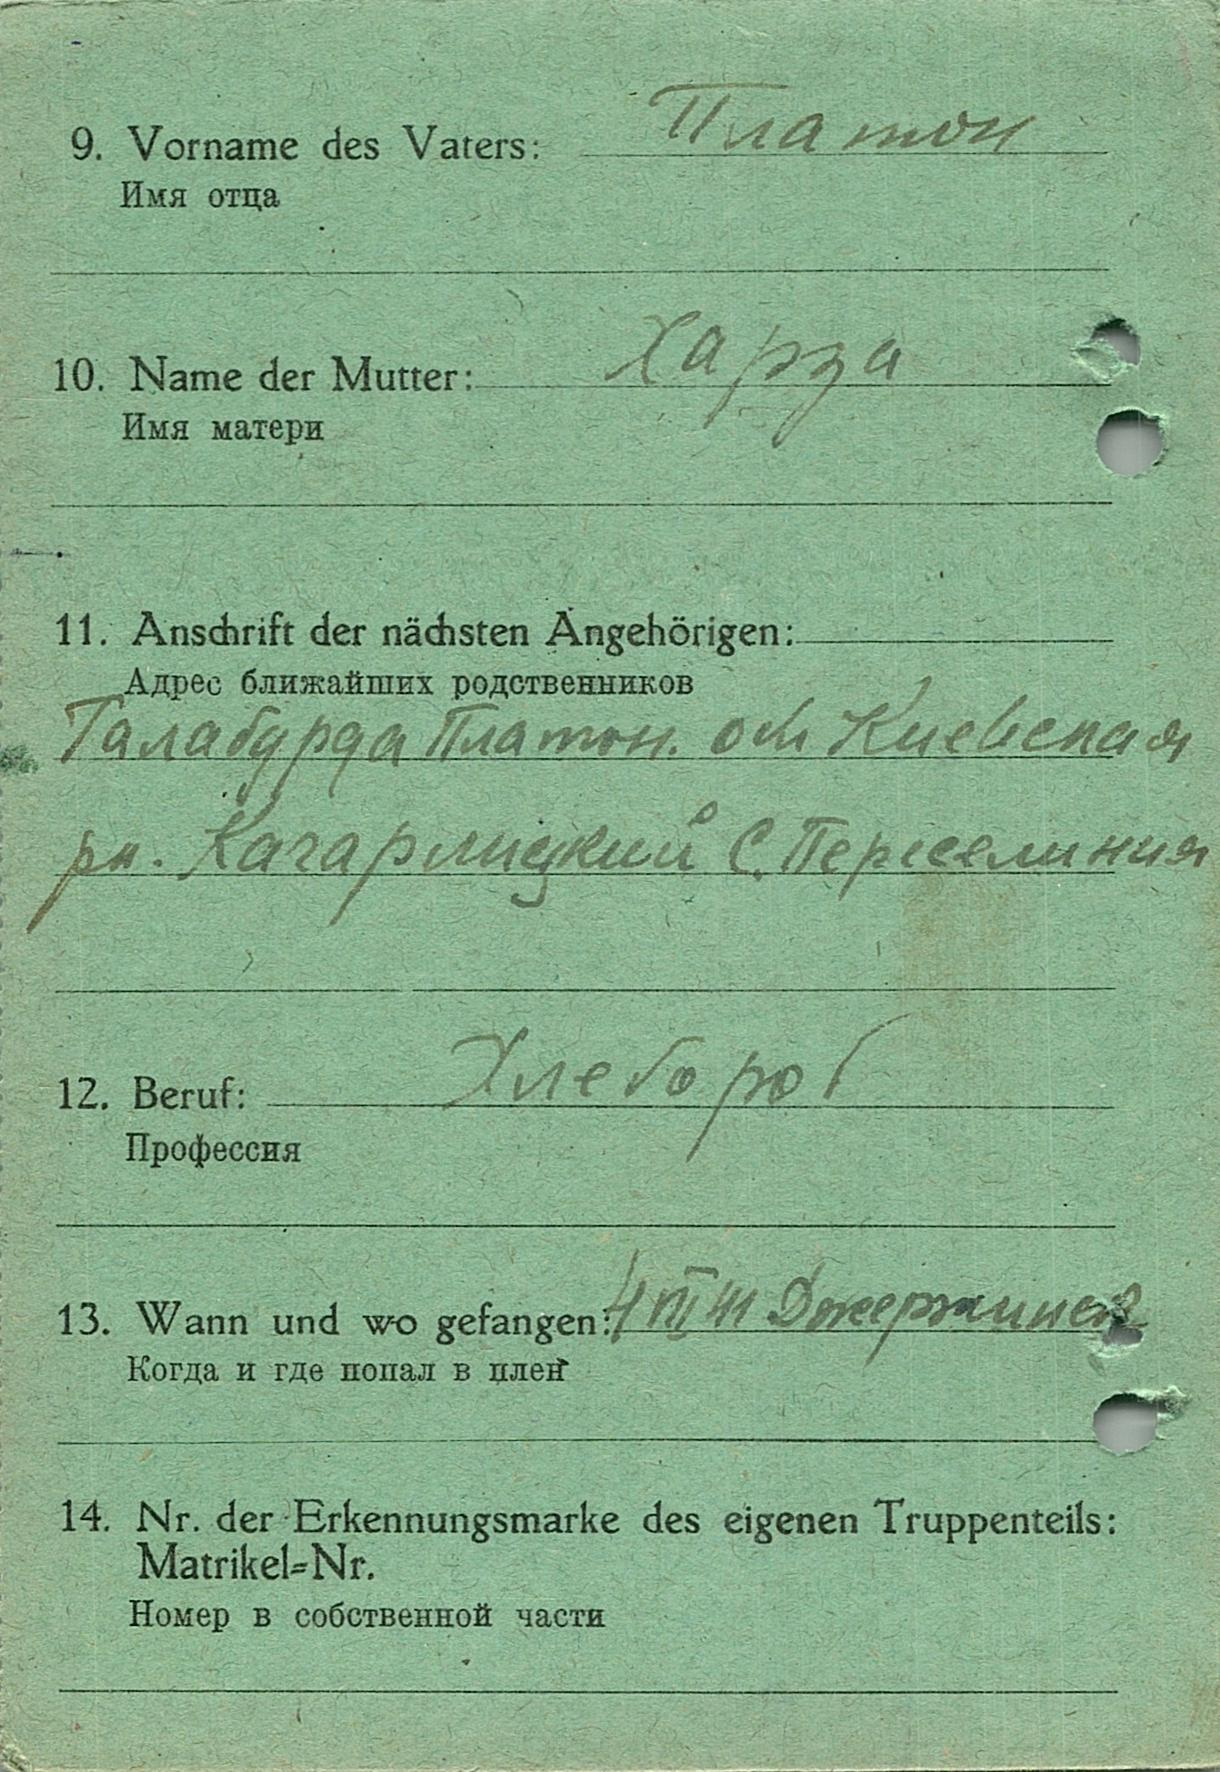 9. Vorname des Vaters: Платон
Имя отца
10. Name der Mutter: Харза
Имя матери
11. Anschrift der nächsten Angehörigen:
Адрес ближайших родственников
Талабурда Платон. обл Киевская
рн. Кагарлицкий С. Переселиния
12. Beruf: Хлебороб
Профессия
13. Wann und wo gefangen: VIII 41
Когда и где попал в плен
14. Nr. der Erkennungsmarke des eigenen Truppenteils:
Matrikel=Nr.
Номер в собственной части